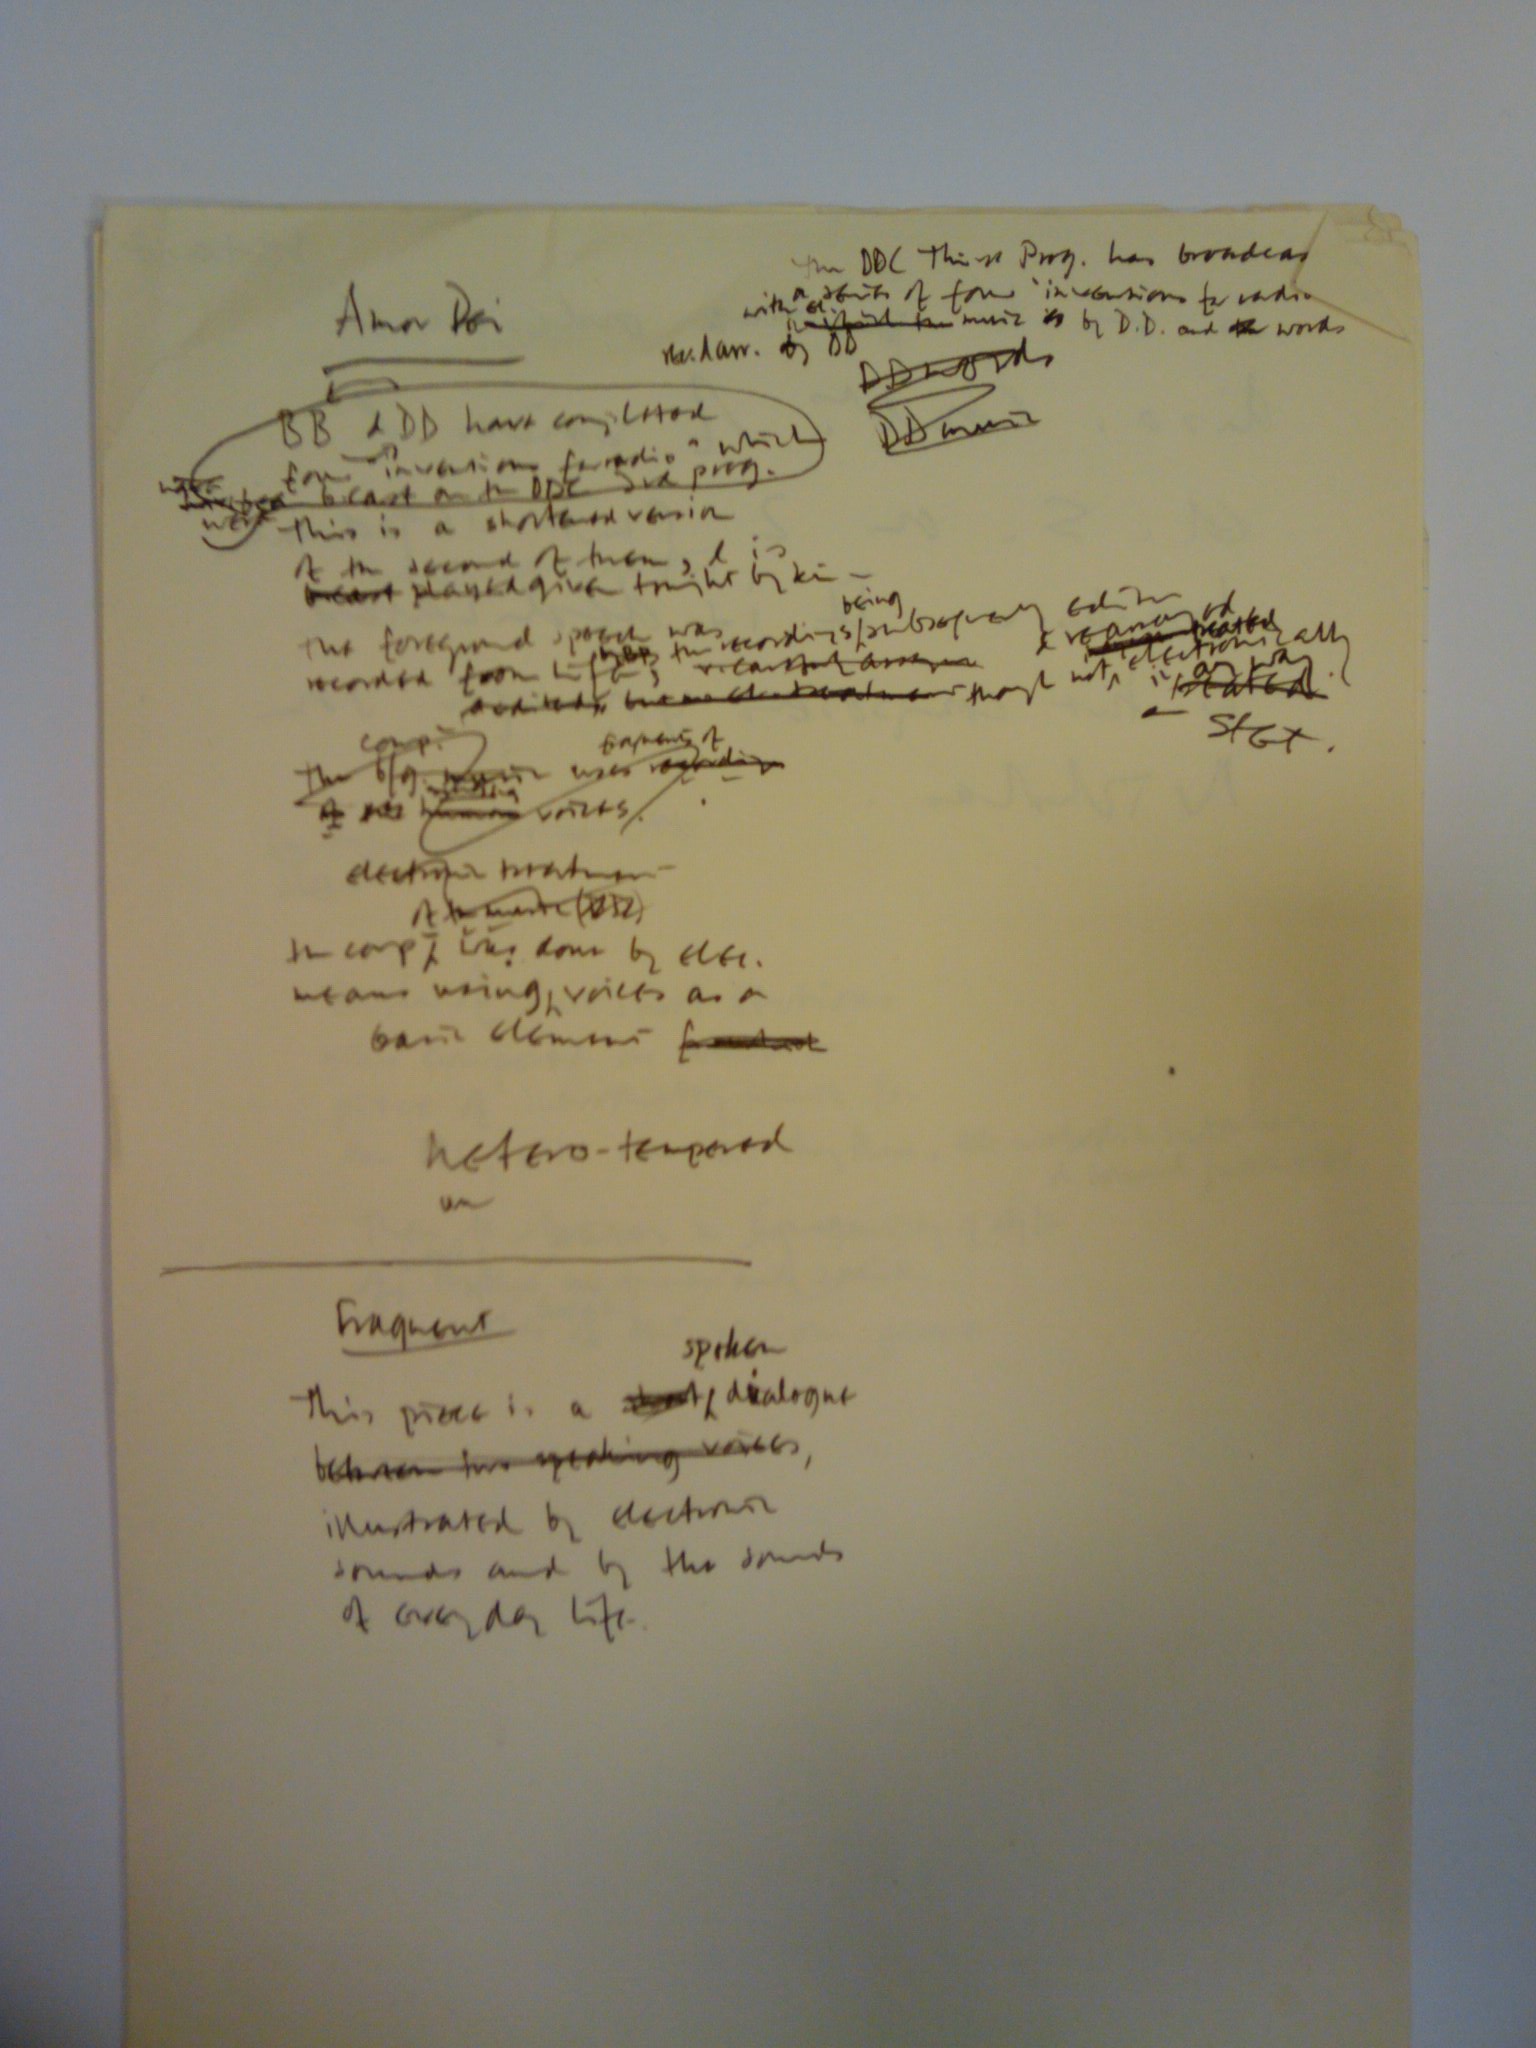 Amor Dei
the BBC Third Prog. has broadcast
with a series of four "inventions for radio
music is by D.D. and words
rec. & arr. by BB
BB words
DD music
BB & DD have completed
four "inventions for radio" which
were bcast on the BBC 3rd prog.
This is a shortened version
of the second of them, & is
bcast played given tonight by kin
The foreground speech was
recorded from life, by BB, the recordings being subsequently edited
& rearranged
though not electronically treated
in any way
STET.
comp.
The b/g. music uses fragments of recordings
of voices.
electronic treatment
of the music
the comp. was done by elec.
means using voices as a
basic element
hetero-tempered
Fragment
spoken
This piece is a dialogue
between two speaking voices,
illustrated by electronic
sounds and by the sounds
of everyday life.